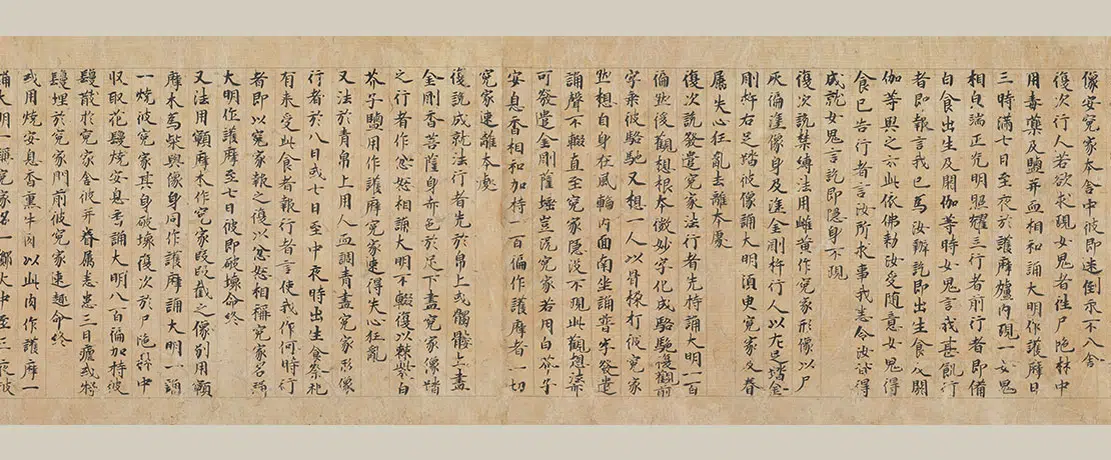 像安冤家本舍中彼即迷倒求不八舍
復次行人若欲求現女鬼者往尸陁林中
用毒藥及鹽并血相和誦大明作護摩日
三時滿七日至夜於護摩爐內現一女鬼
相貌端正光明照耀三行者前行者即備
白食出生及閼伽等時女鬼言我甚飢行
者即報言我已為汝辦訖即出生食及閼
伽等與之云此依佛勅汝受隨意女鬼得
食已告行者言汝所求事我悉令汝皆得
成就女鬼言訖即隱身不現
復次說禁縛法用雌黃作冤家形像以尸
灰徧塗像身及塗金剛杵行人以左足踏金
剛杵右足踏彼像誦大明須臾冤家及眷
屬失心狂亂去離本處
復次說發遣冤家法行者先持誦大明一百
徧然後觀想根本微妙字化成駱駝復觀前
字乘彼駱駝又想一人以骨棒打彼冤家
然想自身在風輪內面南坐誦普牢發遣
誦聲不輟直至冤家隱沒不現此觀想法亦
可發遣金剛薩埵豈況冤家若用白芥子
安息香相和加持一百徧作護摩者一切
冤家速離本處
復說成就法行者先於帛上或髑髏上畫
金剛香菩薩身赤色於足下畫冤家像踏
之行者作忿怒相誦大明不輟復以糠麩白
芥子鹽用作護摩冤家速得失心狂亂
又法於青帛上用人血調青畫冤家形像
行者於八日或七日至中夜時出生食祭祀
有來受此食者報行者言使我作何時行
者即以冤家報之復以忿怒相稱冤家名稱
大明作護摩至七日彼即破壞命終
又法用願摩木作冤家段段截之像別用願
摩木為柴與像身同作護摩誦大明一誦
一燒彼冤家其身破壞復次於尸陁林中
収取花鬘燒安息香誦大明八百徧加持彼
鬘散於冤家舍彼并眷屬悉患三日瘧或將
鬘埋於冤家門前彼冤家速趣命終
或用燒安息香熏牛肉以此肉作護摩一
誦大明一稱冤家名一擲火中至三夜彼